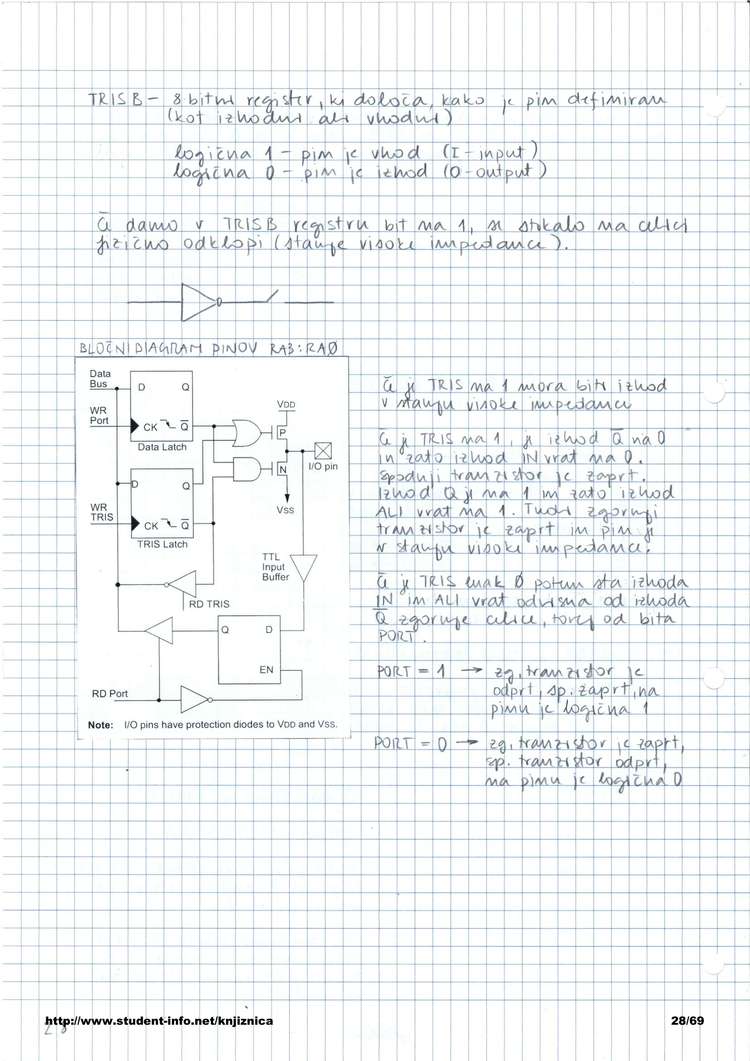 TRISB - 8 bitni register, ki določa, kako je pin definiran
(kot izhodni ali vhodni)
logična 1 - pin je vhod (I-input)
logična 0 - pin je izhod (O-output)
Če damo v TRISB registru bit na 1, se stikalo na celici
fizično odklopi (stanje visoke impedance).
BLOČNI DIAGRAM PINOV RA3:RA0
Data
Bus
D Q
WR
Port
CK Q
Data Latch
VDD
P
N
I/O pin
VSS
D Q
WR
TRIS
CK Q
TRIS Latch
TTL
Input
Buffer
RD TRIS
Q D
EN
RD Port
Note: I/O pins have protection diodes to VDD and VSS.
Če je TRIS na 1 mora biti izhod
v stanju visoke impedance
Če je TRIS na 1, je izhod Q̅ na 0
in zato izhod IN vrat na 0.
Spodnji tranzistor je zaprt.
Izhod Q je na 1 in zato izhod
ALI vrat na 1. Tudi zgornji
tranzistor je zaprt in pin je
v stanju visoke impedance.
Če je TRIS enak 0 potem sta izhoda
IN in ALI vrat odvisna od izhoda
Q̅ zgornje celice, torej od bita
PORT.
PORT = 1 → zg. tranzistor je
odprt, sp. zaprt, na
pinu je logična 1
PORT = 0 → zg. tranzistor je zaprt,
sp. tranzistor odprt,
na pinu je logična 0
http://www.student-info.net/knjiznica
28/69
28